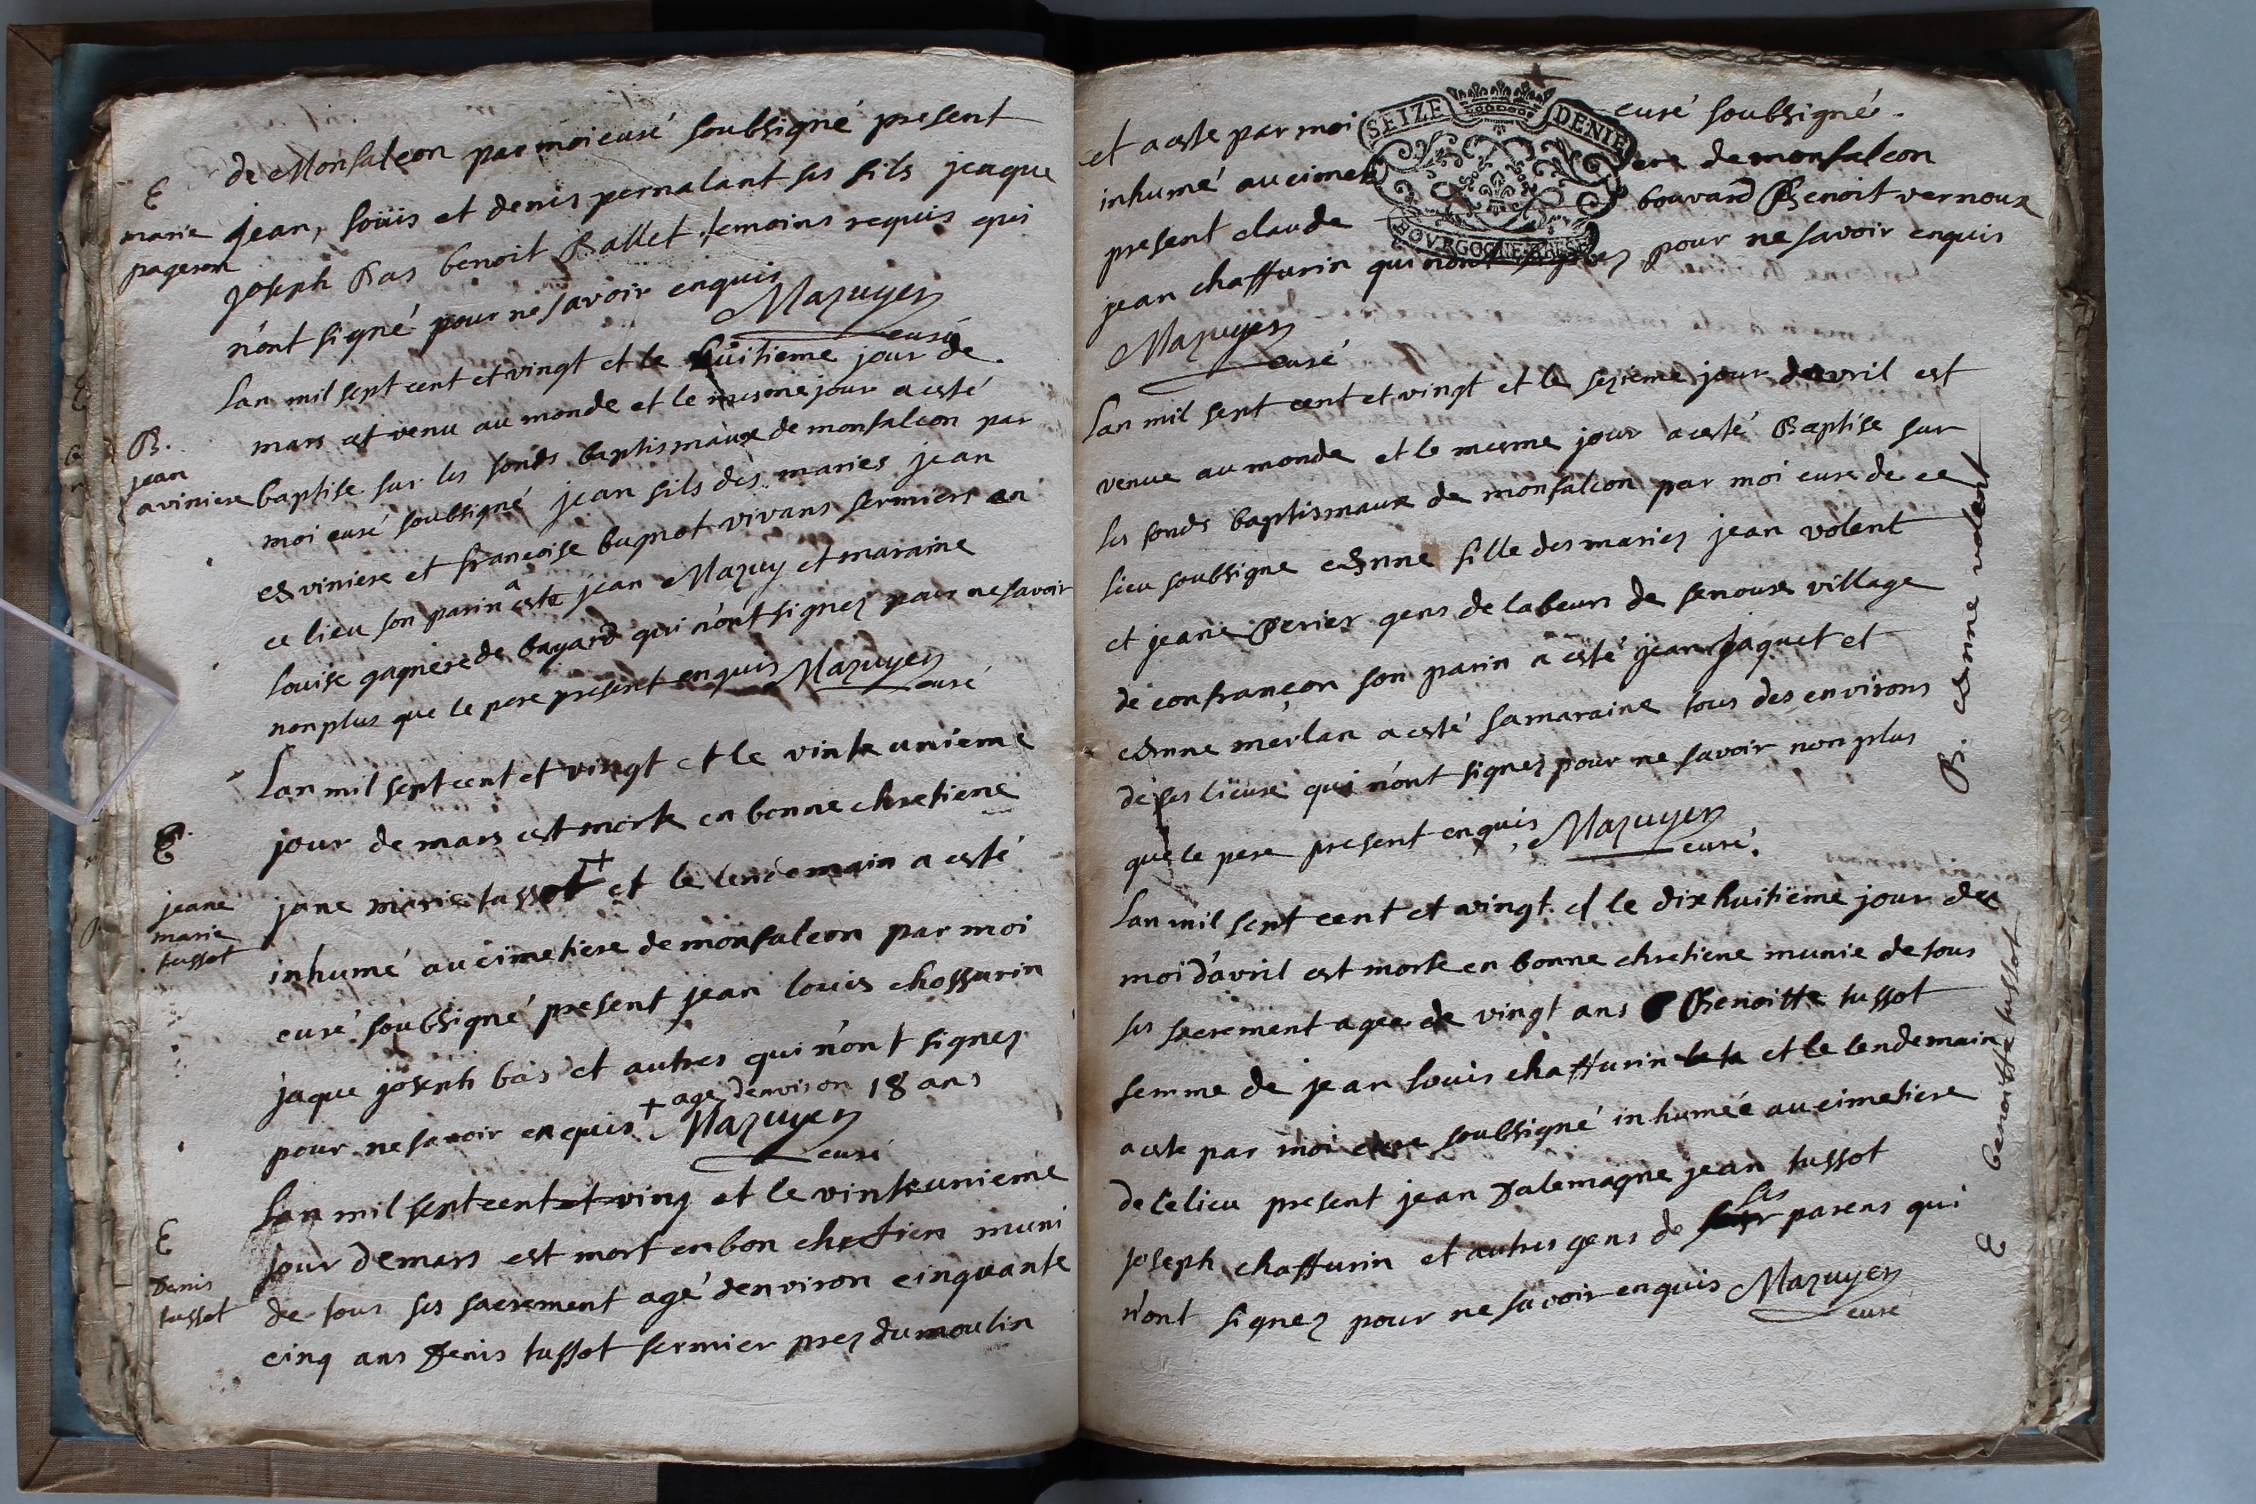 de Monfalcon par moi curé soubsigné present
E
marie
pageron
jean, loüis et denis pernalant ses fils jeaque
joseph Bas benoit Ballet temoins requis qui
n'ont signé pour ne savoir enquis
Mazuyer
curé
Lan mil sept cent et vingt et le huitieme jour de
mars est venu au monde et le mesme jour a esté
B.
jean
aviniere
baptise sur les fonds baptismaux de monfalcon par
moi curé soubsigné jean fils des maries jean
aviniere et françoise bugnot vivans fermiers en
ce lieu son parin a este jean Mazuy et maraine
louise gagnere de bayard qui n'ont signez pour ne savoir
non plus que le pere present enquis Mazuyer
curé
Lan mil sept cent et vingt et le vinte unieme
jour de mars est morte en bonne chretiene
E
jeane
marie
tussot
jane marie tussot + et le lendemain a esté
inhumé au cimetiere de monfalcon par moi
curé soubsigné present jean louis choffurin
jaque joseph bas et autres qui n'ont signez
pour ne savoir enquis + age denviron 18 ans
Mazuyer
curé
Lan mil sept cent et ving et le vinte unieme
jour de mars est mort en bon chretien muni
E
Denis
tussot
de tous ses sacrement agé denviron cinquante
cinq ans Denis tussot fermier prez du moulin
et a este par moi curé soubsigné
inhumé au cimetiere de monfalcon
present claude bouvard Benoit vernoux
jean chaffurin qui n'ont signez pour ne savoir enquis
SEIZE DENIE
BOURGOGNE BRESSE
Mazuyer
curé
Lan mil sept cent et vingt et le sezieme jour davril est
venue au monde et le mesme jour a esté Baptise sur
les fonds baptismaux de monfalcon par moi curé de ce
lieu soubsigne Anne fille des mariez jean volent
et jeane Perier gens de labeurs de senoux village
de confrançon son parin a esté jean jaquet et
Anne merlan a esté sa maraine tous des environs
de ses lieux qui n'ont signez pour ne savoir non plus
que le pere present enquis, Mazuyer
curé.
B. Anne volent
Lan mil sept cent et vingt et le dix huitieme jour de
moi d'avril est morte en bonne chretiene munie de tous
ses sacrement agee de vingt ans Benoitte tussot
femme de jean louis chaffurin et le lendemain
a este par moi curé soubsigné inhumée au cimetiere
de ce lieu present jean Dalemagne jean tussot
joseph chaffurin et autres gens de ses parens qui
n'ont signez pour ne savoir enquis Mazuyer
curé
E benoitte tussot